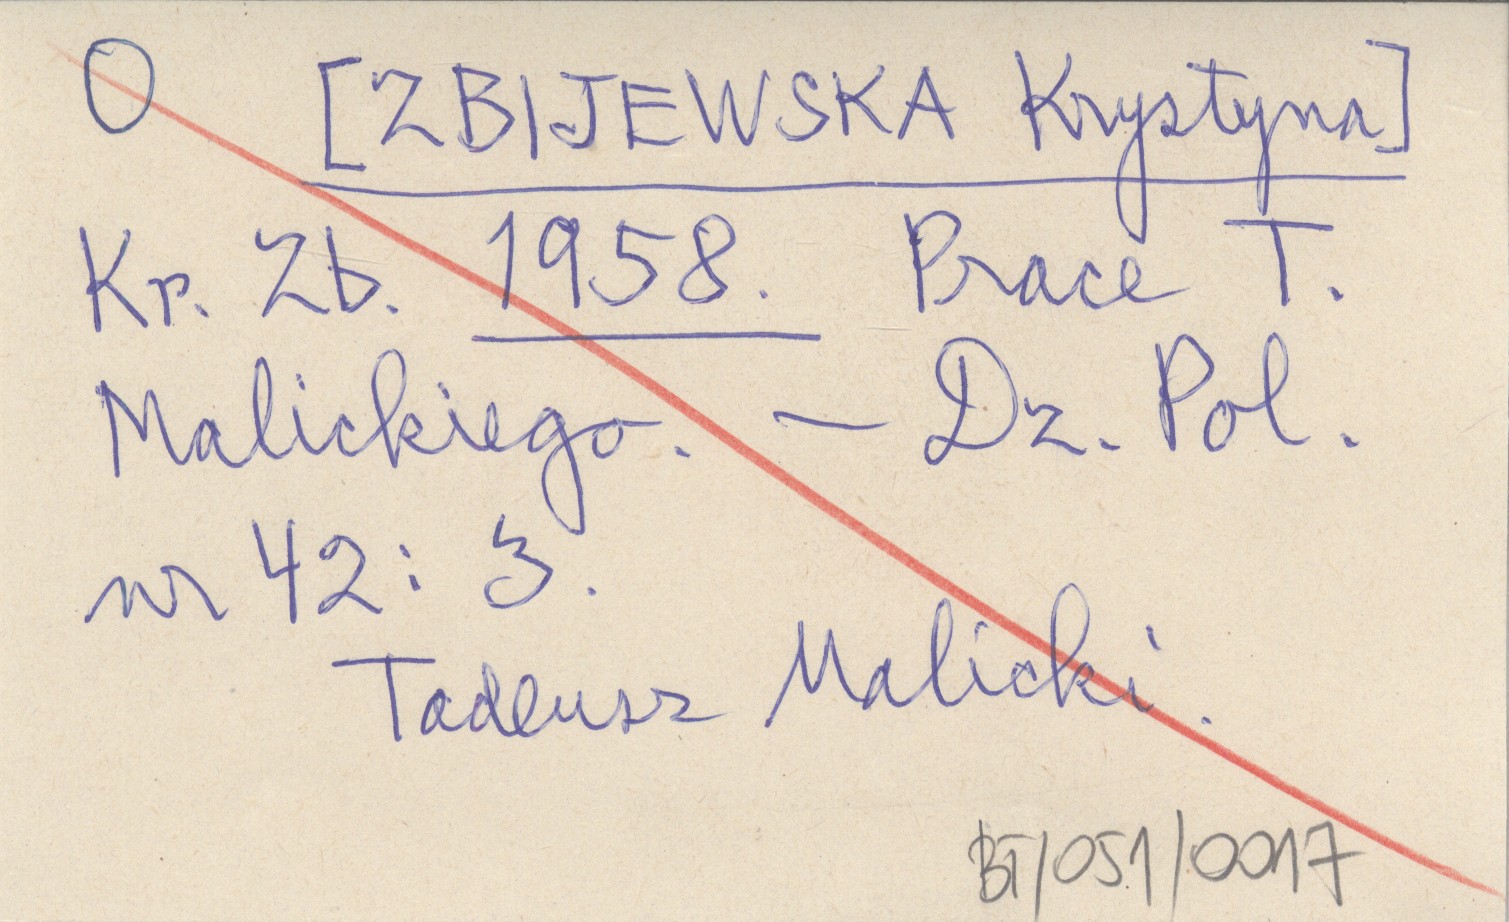 O [ZBIJEWSKA Krystyna]
Kr. Zb. 1958. Prace T.
Malickiego. — Dz. Pol.
nr 42: 3.
Tadeusz Malicki.
BT/051/0017